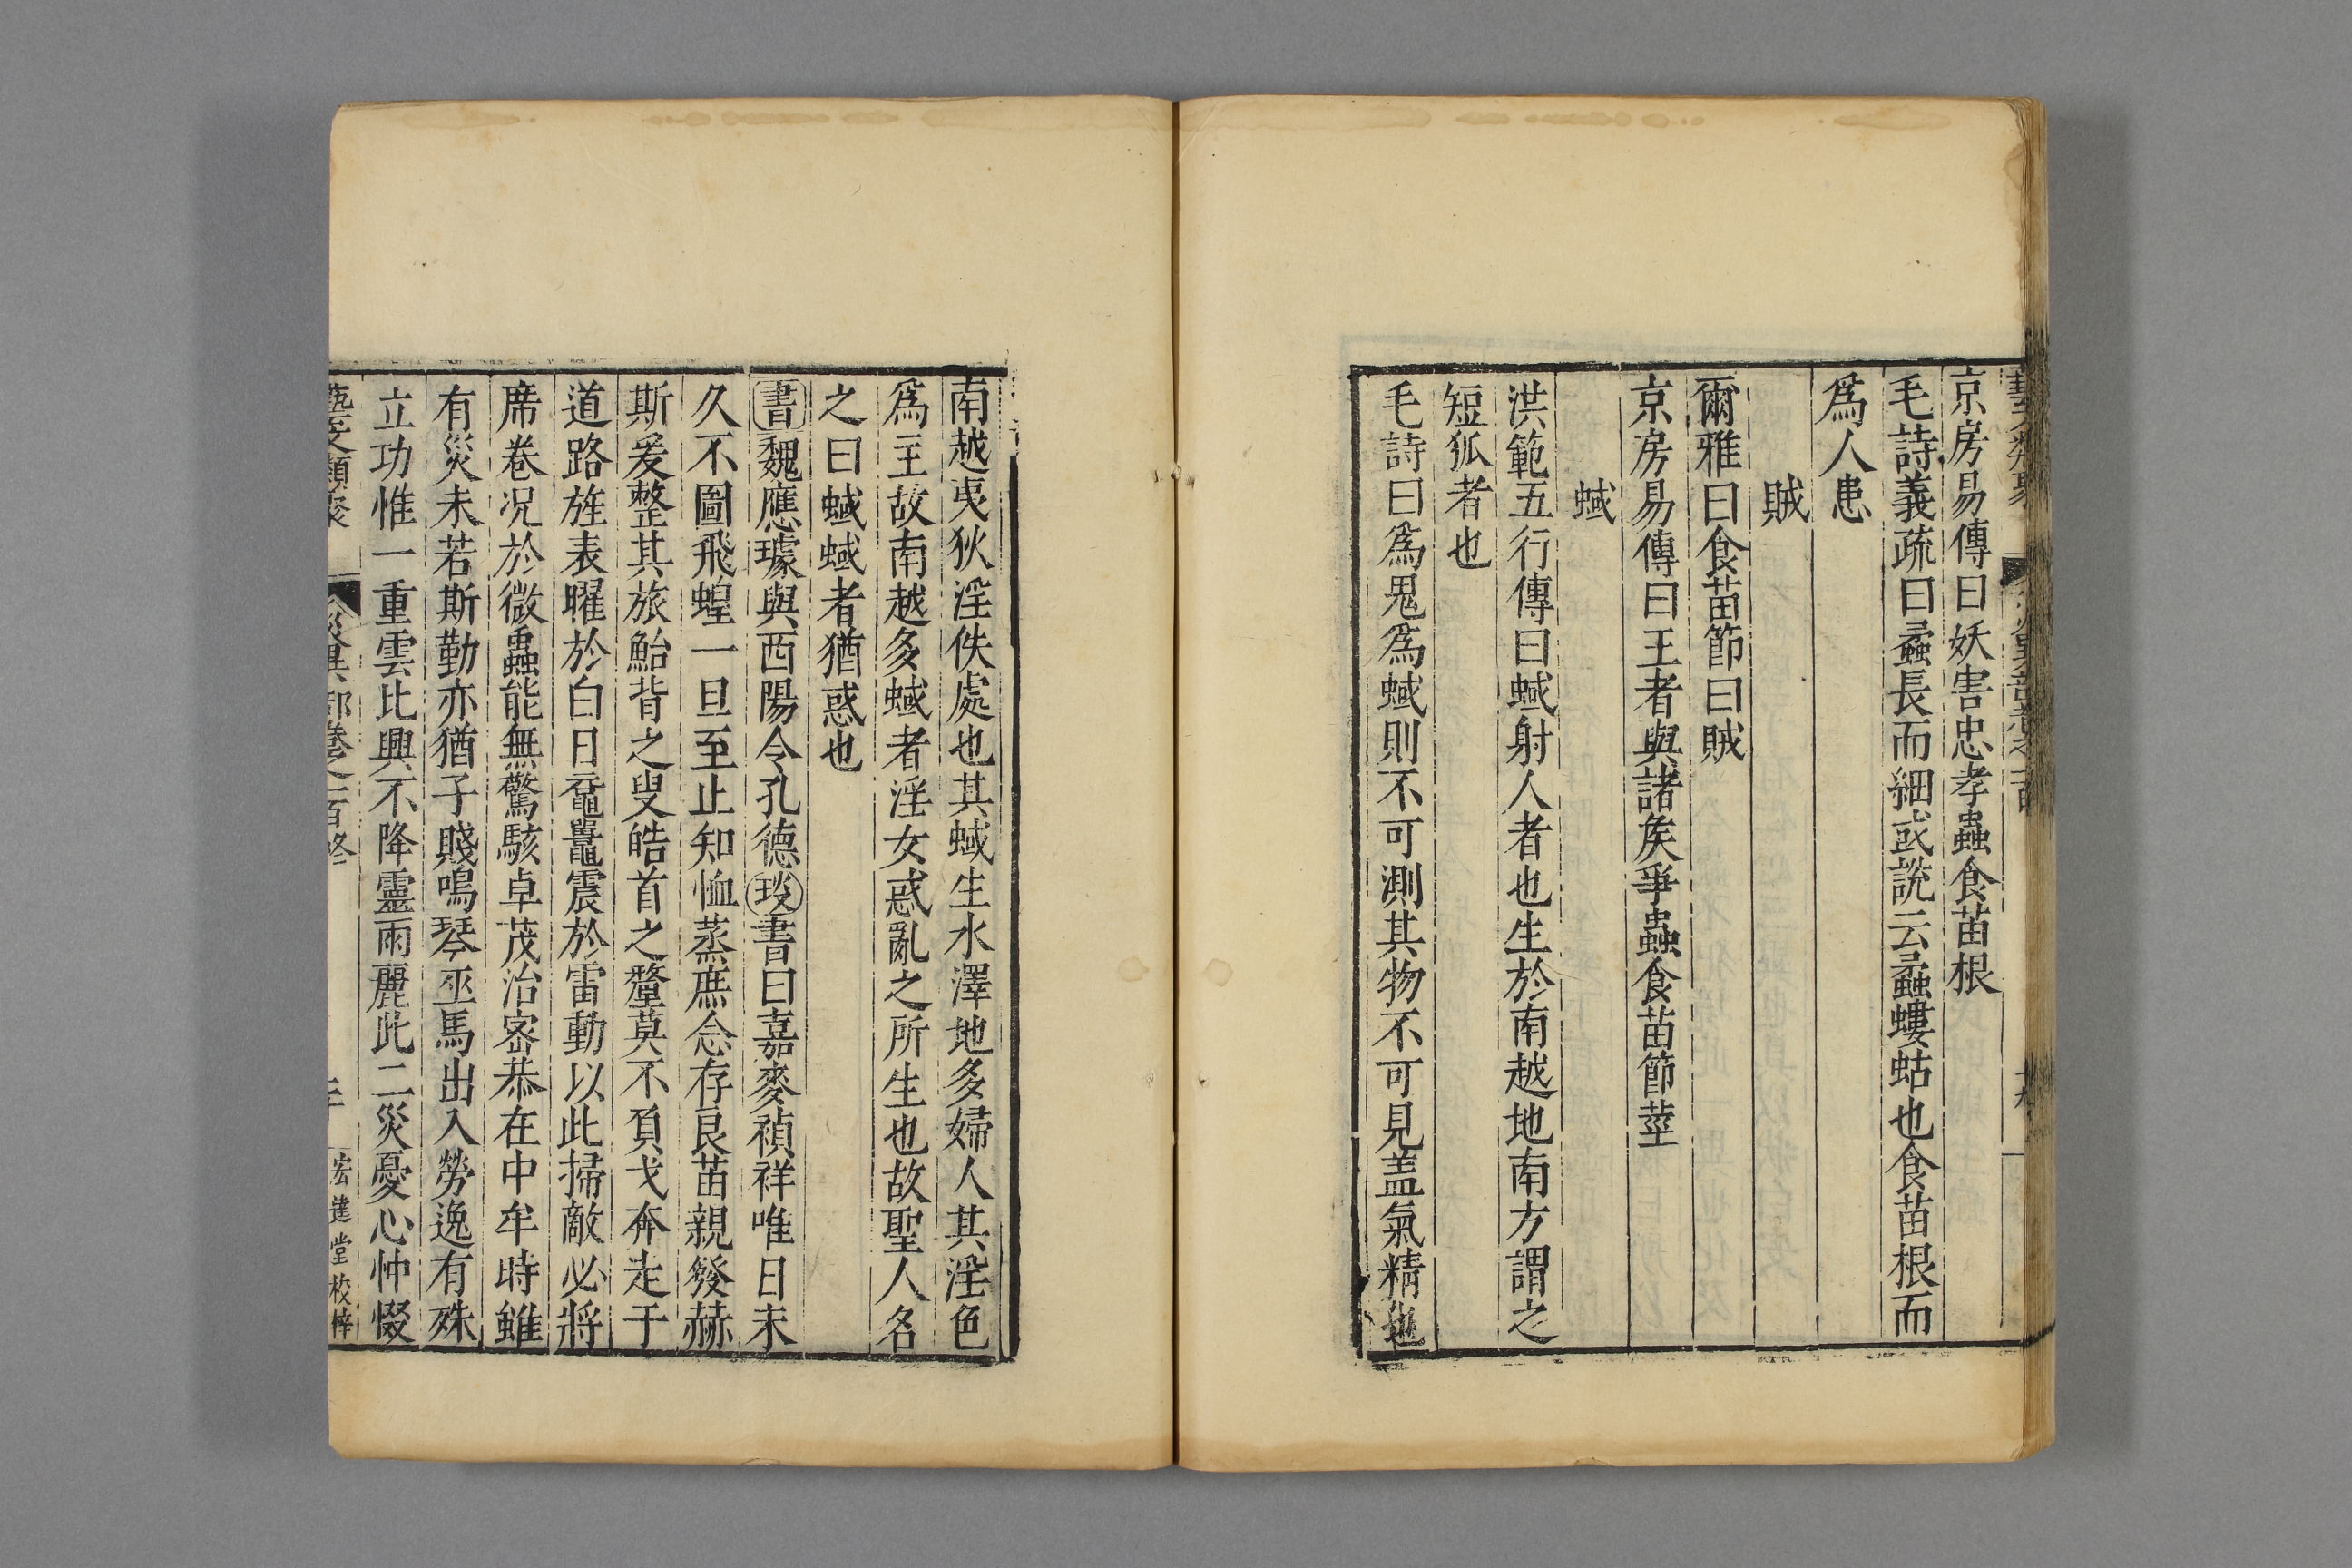 京房易傳曰妖害忠孝蟲食苗根
毛詩義疏曰蟊長而細或說云蟊螻蛄也食苗根而
爲人患
賊
爾雅曰食苗節曰賊
京房易傳曰王者與諸矦爭蟲食苗節莖
蜮
洪範五行傳曰蜮射人者也生於南越地南方謂之
短狐者也
毛詩曰爲鬼爲蜮則不可測其物不可見盖氣精也
南越夷狄淫佚處也其蜮生水澤地多婦人其淫色
爲主故南越多蜮蜮者淫女惑亂之所生也故聖人名
之曰蜮蜮者猶惑也
書魏應璩與西陽令孔德琰書曰嘉麥禎祥唯日未
久不圖飛蝗一旦至止知恤蒸庶念存良苗親發赫
斯爰整其旅鮐背之叟皓首之嫠莫不負戈奔走于
道路旌表曜於白日鼀鼉震於雷動以此掃敵必將
席卷况於微蟲能無驚駭卓茂治密恭在中牟時雖
有災未若斯勤亦猶子賤鳴琴巫馬出入勞逸有殊
立功惟一重雲比興不降靈雨麗此二災憂心忡惙
藝文類聚 災異部卷之一百終 宏達堂校梓